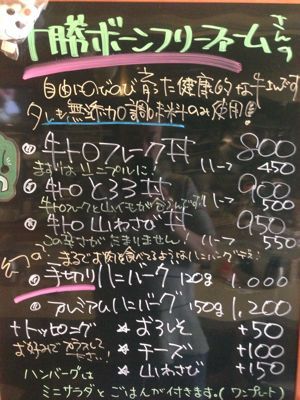 十勝ボーンフリーファームさんの
自由にのびのび育った健康的な牛さんです
タレも無添加調味料のみ使用!
牛トロフレーク丼 800
まずはシンプルに! ハーフ→ 450
牛トロととろ丼 900
牛トロフレークと山イモがからみます! ハーフ→ 500
牛トロ山わさび丼 950
この辛さがたまりません! ハーフ→ 550
まるでお肉を食べてるようなハンバーグです!
手切りハンバーグ 120g 1,000
プレミアムハンバーグ 150g 1,200
+トッピング ★おろしそ +50
お好みでプラスしてください! ★チーズ +100
ハンバーグは ★山わさび +150
ミニサラダとごはんが付きます。(ワンプレート)